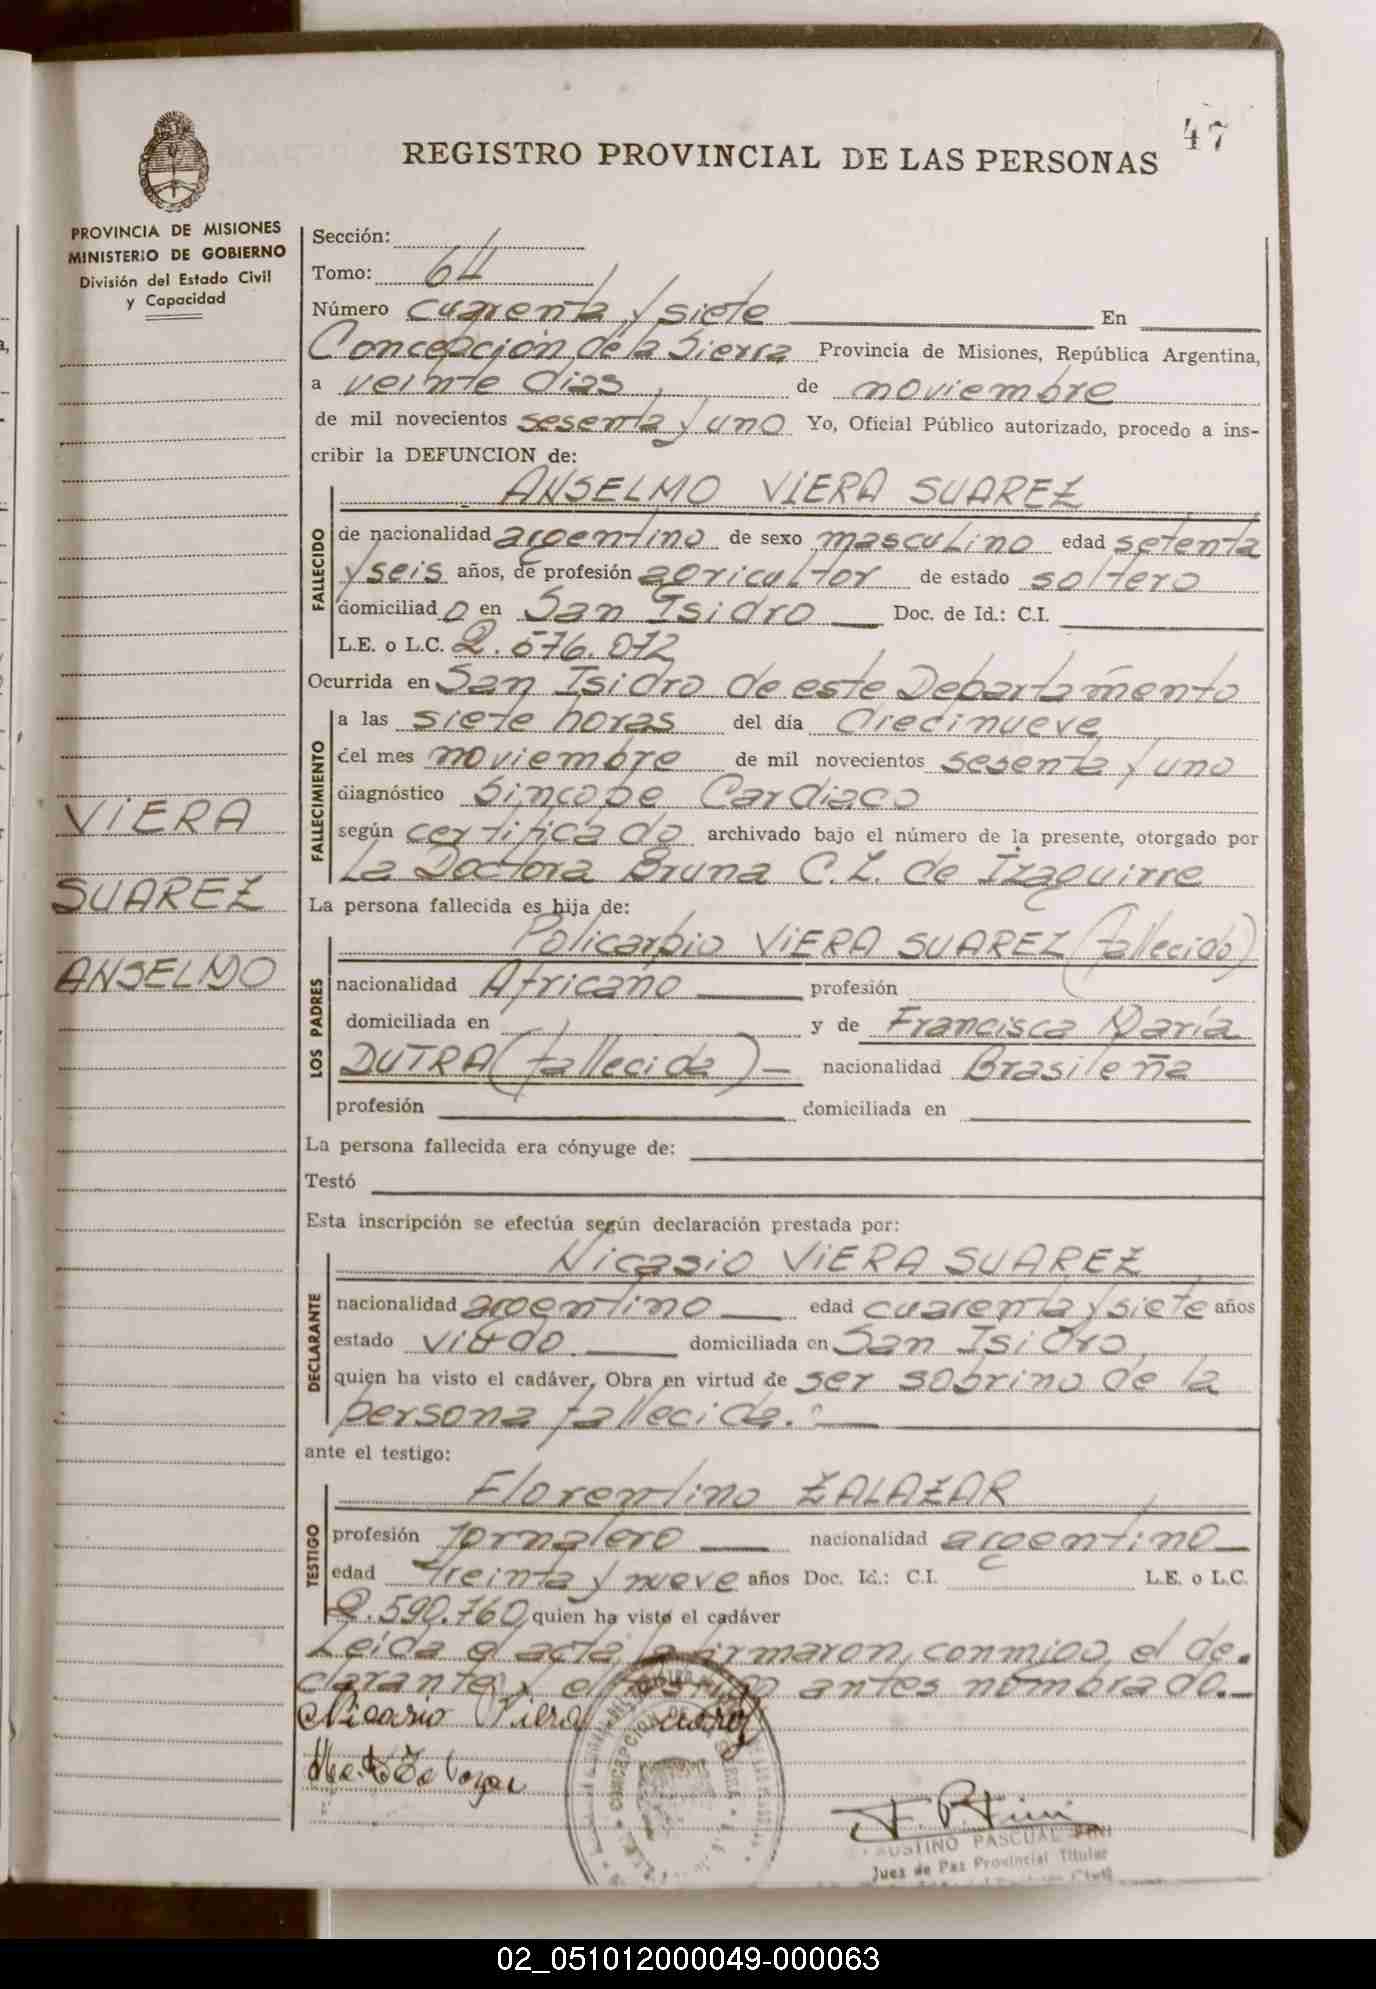 47
REGISTRO PROVINCIAL DE LAS PERSONAS
PROVINCIA DE MISIONES
MINISTERIO DE GOBIERNO
División del Estado Civil
y Capacidad
VIERA
SUAREZ
ANSELMO
Sección:
Tomo: 64
Número cuarenta y siete En
Concepción de la Sierra Provincia de Misiones, República Argentina,
a veinte dias de noviembre
de mil novecientos sesenta y uno Yo, Oficial Público autorizado, procedo a ins-
cribir la DEFUNCION de:
ANSELMO VIERA SUAREZ
FALLECIDO
de nacionalidad argentino de sexo masculino edad setenta
y seis años, de profesión agricultor de estado soltero
domiciliado en San Isidro Doc. de Id.: C.I.
L.E. o L.C. 2.576.072
Ocurrida en San Isidro de este Departamento
FALLECIMIENTO
a las siete horas del día diecinueve
del mes noviembre de mil novecientos sesenta y uno
diagnóstico Síncope Cardiaco
según certificado archivado bajo el número de la presente, otorgado por
la Doctora Bruna C.Z. de Izaguirre
La persona fallecida es hija de:
LOS PADRES
Policarpio VIERA SUAREZ (fallecido)
nacionalidad Africano profesión
domiciliada en y de Francisca María
DUTRA (fallecida) nacionalidad Brasileña
profesión domiciliada en
La persona fallecida era cónyuge de:
Testó
Esta inscripción se efectúa según declaración prestada por:
DECLARANTE
Nicasio VIERA SUAREZ
nacionalidad argentino edad cuarenta y siete años
estado viudo domiciliada en San Isidro,
quien ha visto el cadáver, Obra en virtud de ser sobrino de la
persona fallecida.
ante el testigo:
TESTIGO
Florentino ZALAZAR
profesión Jornalero nacionalidad argentino
edad treinta y nueve años Doc. Id.: C.I. L.E. o L.C.
2.590.760 quien ha visto el cadáver
Leída el acta la firmaron conmigo, el de-
clarante y el testigo antes nombrado.
Nicasio Viera Suarez
CONCEPCION DE LA SIERRA
F. P. Fini
FAUSTINO PASCUAL FINI
Juez de Paz Provincial Titular
02_051012000049-000063